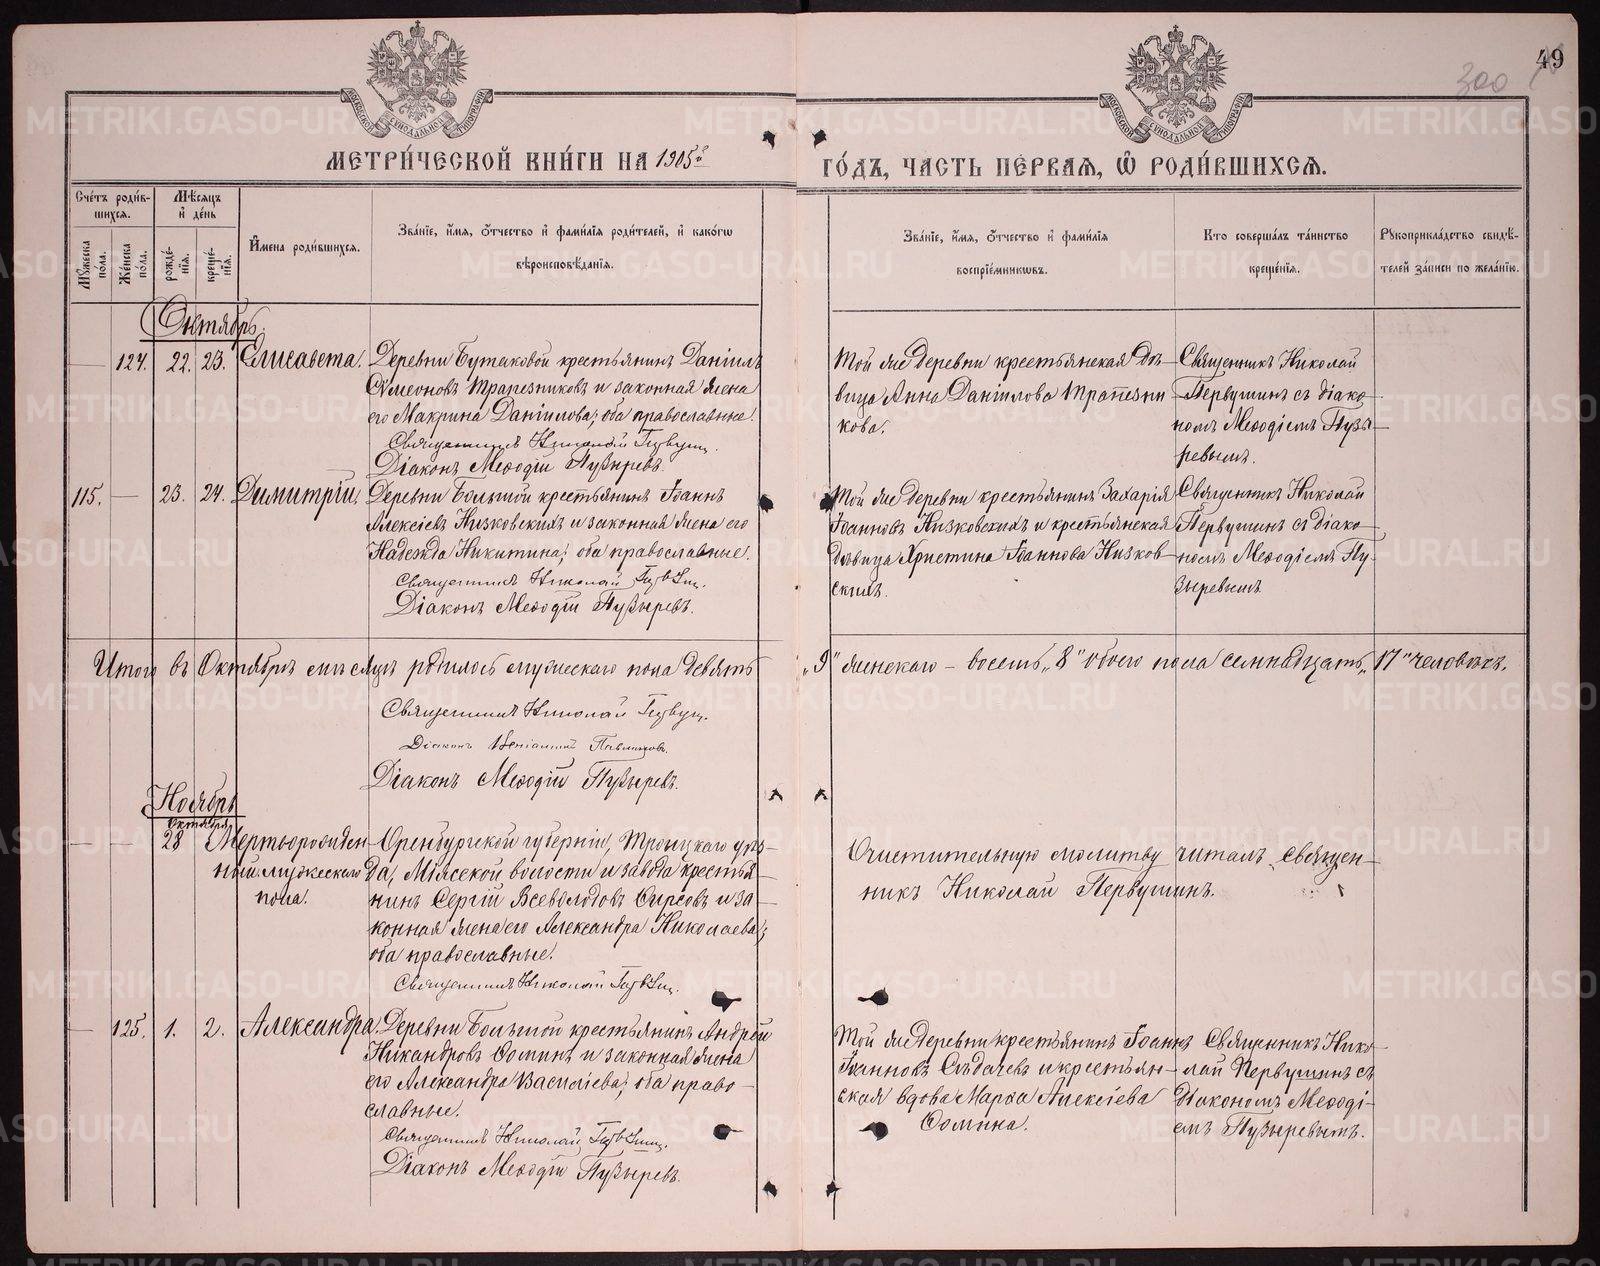 49
300
МЕТРИ́ЧЕСКОЙ КНИ́ГИ НА 1905й ГО́ДЪ, ЧА́СТЬ ПЕ́РВАЯ, Ѽ РОДИ́ВШИХСЯ.
Сче́тъ роди́в-
шихся.
Мѣ́сяцъ
и де́нь
И́мена роди́вшихся.
Зва́нїе, и́мя, о́тчество и фами́лїя роди́телей, и како́гѡ
вѣроисповѣ́данїя.
Зва́нїе, и́мя, о́тчество и фами́лїя
воспрїе́мникѡвъ.
Кто соверша́лъ та́инство
креще́нїя.
Рукоприкла́дство свидѣ́-
телей за́писи по жела́нїю.
Му́жеска по́ла.
Же́нска по́ла.
рожде́-
нїя.
креще́-
нїя.
Октябрь.
124. 22. 23. Елисавета.
Деревни Бутаковой крестьянинъ Даніилъ
Сѵмеоновъ Трапезниковъ и законная жена
его Макрина Даніилова; оба православные.
Священникъ Николай Первушинъ.
Діаконъ Меѳодій Пузыревъ.
Той же деревни крестьянская дѣ-
вица Анна Даніилова Трапезни
кова.
Священникъ Николай
Первушинъ съ діако-
номъ Меѳодіемъ Пузы-
ревымъ.
115. — 23. 24. Димитрій.
Деревни Большой крестьянинъ Іоаннъ
Алексіевъ Низковскихъ и законная жена его
Надежда Никитина; оба православные.
Священникъ Николай Первушинъ.
Діаконъ Меѳодій Пузыревъ.
Той же деревни крестьянинъ Захарія
Іоанновъ Низковскихъ и крестьянская
дѣвица Христина Іоаннова Низков-
скихъ.
Священникъ Николай
Первушинъ съ діако-
номъ Меѳодіемъ Пу-
зыревымъ
Итого въ Октябрѣ мѣсяцѣ родилось мужескаго пола девять „9" женскаго – восемь „8" обоего пола семнадцать „17" человѣкъ.
Священникъ Николай Первушинъ.
Діаконъ Меѳодій Пузыревъ.
Ноябрь
Октября
28 Мертворожден-
ный мужескаго
пола.
Оренбургской губерніи, Троицкаго уѣз-
да, Міясской волости и завода крестья-
нинъ Сергій Всеволодовъ Сырсовъ и за-
конная жена его Александра Николаева;
оба православные.
Священникъ Николай Первушинъ.
Очистительную молитву читалъ священ-
никъ Николай Первушинъ.
— 125. 1. 2. Александра
Деревни Большой крестьянинъ Андрей
Никандровъ Соминъ и законная жена
его Александра Василіева; оба право-
славные.
Священникъ Николай Первушинъ.
Діаконъ Меѳодій Пузыревъ.
Той же деревни крестьянинъ Іоаннъ
Іоанновъ Сѣдачевъ и крестьян-
ская вдова Марѳа Алексіева
Сомина.
Священникъ Нико-
лай Первушинъ съ
діакономъ Меѳоді-
емъ Пузыревымъ.